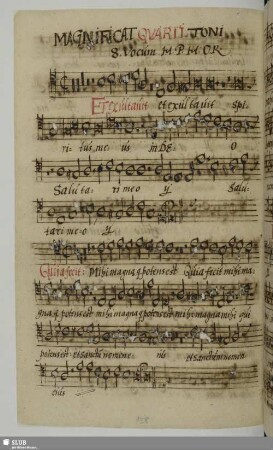 MAGNIFICAT QVARTI TONI
8. Vocum M P M O R
Et exultavit et exultavit Spi
ri tus me us in DE O
Saluta ri me o Salu
tari me o
Quia fecit Mihi magna q potens est Quia fecit mihi ma
gna q potens est mihi magna q potens est mihi magna mihi qui
potens est et sanctum nomen
eius
SLUB